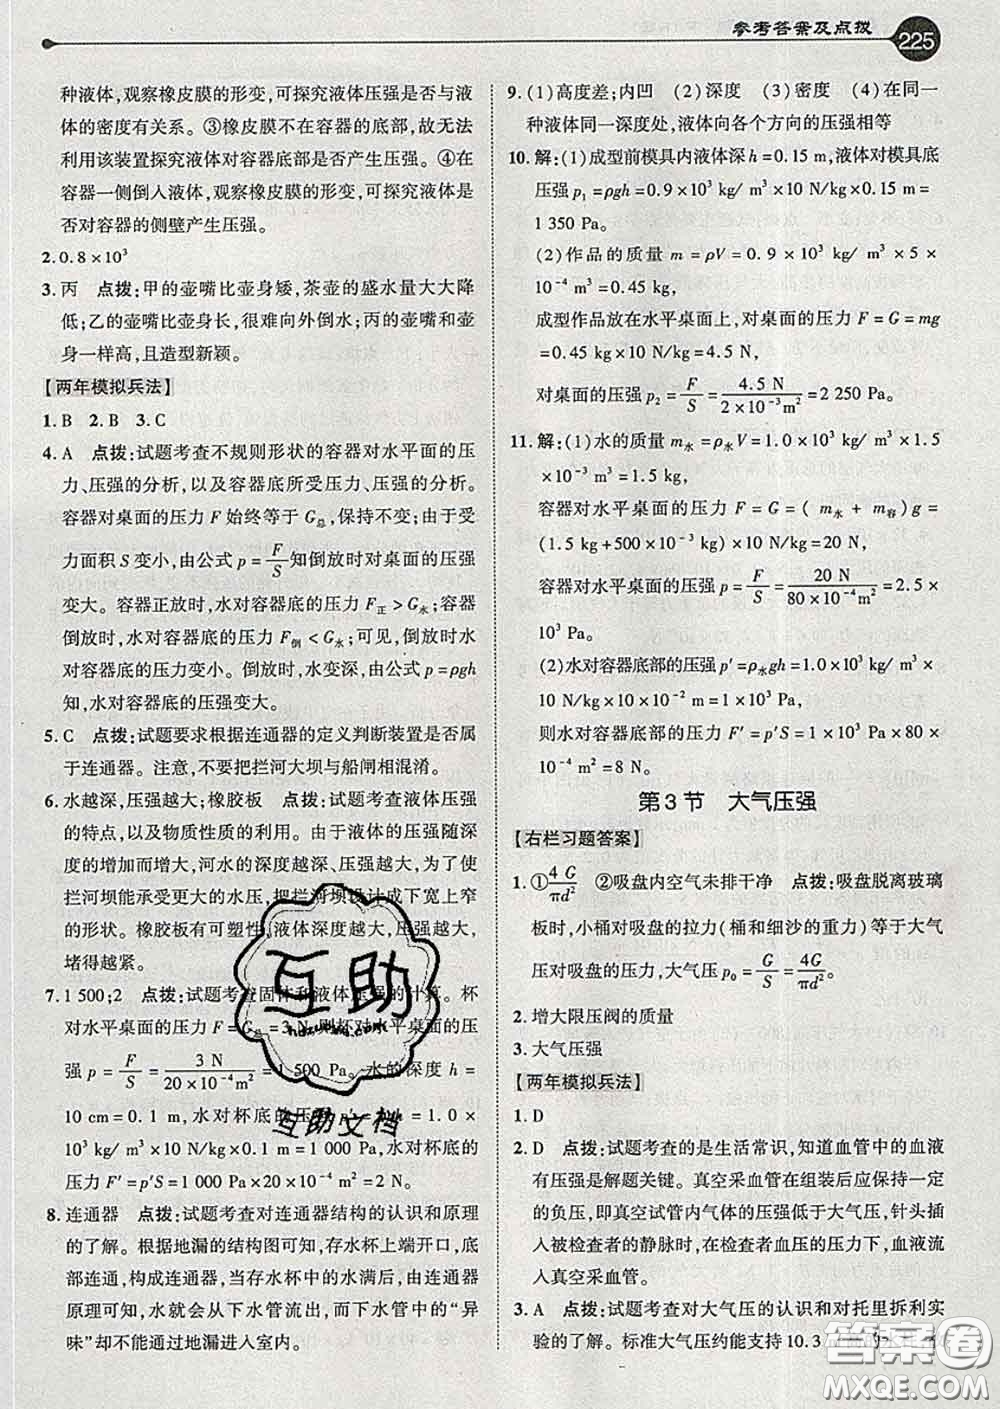 参考答案及点拨
225
种液体,观察橡皮膜的形变,可探究液体压强是否与液
体的密度有关系。③橡皮膜不在容器的底部,故无法
利用该装置探究液体对容器底部是否产生压强。④在
容器一侧倒入液体,观察橡皮膜的形变,可探究液体是
否对容器的侧壁产生压强。
2. 0.8×10³
3. 丙 点拨:甲的壶嘴比壶身矮,茶壶的盛水量大大降
低;乙的壶嘴比壶身长,很难向外倒水;丙的壶嘴和壶
身一样高,且造型新颖。
【两年模拟兵法】
1. B 2. B 3. C
4. A 点拨:试题考查不规则形状的容器对水平面的压
力、压强的分析,以及容器底所受压力、压强的分析。
容器对桌面的压力 F 始终等于 G总,保持不变;由于受
力面积 S 变小,由公式 p = F/S 知倒放时对桌面的压强
变大。容器正放时,水对容器底的压力 F正 > G水;容器
倒放时,水对容器底的压力 F倒 < G水;可见,倒放时,水
对容器底的压力变小。倒放时,水变深,由公式 p=ρgh
知,水对容器底的压强变大。
5. C 点拨:试题要求根据连通器的定义判断装置是否属
于连通器。注意,不要把拦河大坝与船闸相混淆。
6. 水越深,压强越大;橡胶板 点拨:试题考查液体压强
的特点,以及物质性质的利用。由于液体的压强随深
度的增加而增大,河水的深度越深、压强越大,为了使
拦河坝能承受更大的水压,把拦河坝设计成下宽上窄
的形状。橡胶板有可塑性,液体深度越大,压强越大,
堵得越紧。
7. 1 500;2 点拨:试题考查固体和液体压强的计算。杯
对水平桌面的压力 F = G总 = 3 N,则杯对水平桌面的压
强 p = F/S = 3 N/(20×10⁻⁴ m²) = 1 500 Pa。水的深度 h =
10 cm = 0.1 m,水对杯底的压强 p′ = ρgh = 1.0 ×
10³ kg/m³ ×10 N/kg×0.1 m = 1 000 Pa,水对杯底的
压力 F′ = p′S = 1 000 Pa×20×10⁻⁴ m² = 2 N。
8. 连通器 点拨:试题考查对连通器结构的认识和原理
的了解。根据地漏的结构图可知,存水杯上端开口,底
部连通,构成连通器,当存水杯中的水满后,由连通器
原理可知,水就会从下水管流出,而下水管中的“异
味”却不能通过地漏进入室内。
9. (1)高度差;内凹 (2)深度 (3)密度 (4)在同一
种液体同一深度处,液体向各个方向的压强相等
10. 解:(1)成型前模具内液体深 h = 0.15 m,液体对模具底
压强 p₁ = ρgh = 0.9×10³ kg/m³×10 N/kg×0.15 m =
1 350 Pa。
(2)作品的质量 m = ρV = 0.9 × 10³ kg/m³ × 5 ×
10⁻⁴ m³ = 0.45 kg,
成型作品放在水平桌面上,对桌面的压力 F = G = mg
= 0.45 kg×10 N/kg = 4.5 N,
对桌面的压强 p₂ = F/S = 4.5 N/(2×10⁻³ m²) = 2 250 Pa。
11. 解:(1)水的质量 m水 = ρ水V = 1.0×10³ kg/m³×1.5
×10⁻³ m³ = 1.5 kg,
容器对水平桌面的压力 F = G = (m水 + m容)g =
(1.5 kg+500×10⁻³ kg)×10 N/kg = 20 N,
容器对水平桌面的压强 p = F/S = 20 N/(80×10⁻⁴ m²) = 2.5×
10³ Pa。
(2)水对容器底部的压强 p′ = ρ水gh = 1.0×10³ kg/m³ ×
10 N/kg×10×10⁻² m = 1×10³ Pa,
则水对容器底部的压力 F′ = p′S = 1×10³ Pa×80×
10⁻⁴ m² = 8 N。
第3节 大气压强
【右栏习题答案】
1. ①4G/πd² ②吸盘内空气未排干净 点拨:吸盘脱离玻璃
板时,小桶对吸盘的拉力(桶和细沙的重力)等于大气
压对吸盘的压力,大气压 p₀ = G/S = 4G/πd²。
2. 增大限压阀的质量
3. 大气压强
【两年模拟兵法】
1. D
2. D 点拨:试题考查的是生活常识,知道血管中的血液
有压强是解题关键。真空采血管在组装后保持一定的
负压,即真空试管内气体的压强低于大气压,针头插入
被检查者的静脉时,在血压和大气压的压力下,血液流入
真空采血管。
3. A 点拨:试题考查对大气压的认识和对托里拆利实
验的了解。标准大气压约能支持 10.3
互助
hdzuowen.com
互助文档
答案圈
MXQE.COM